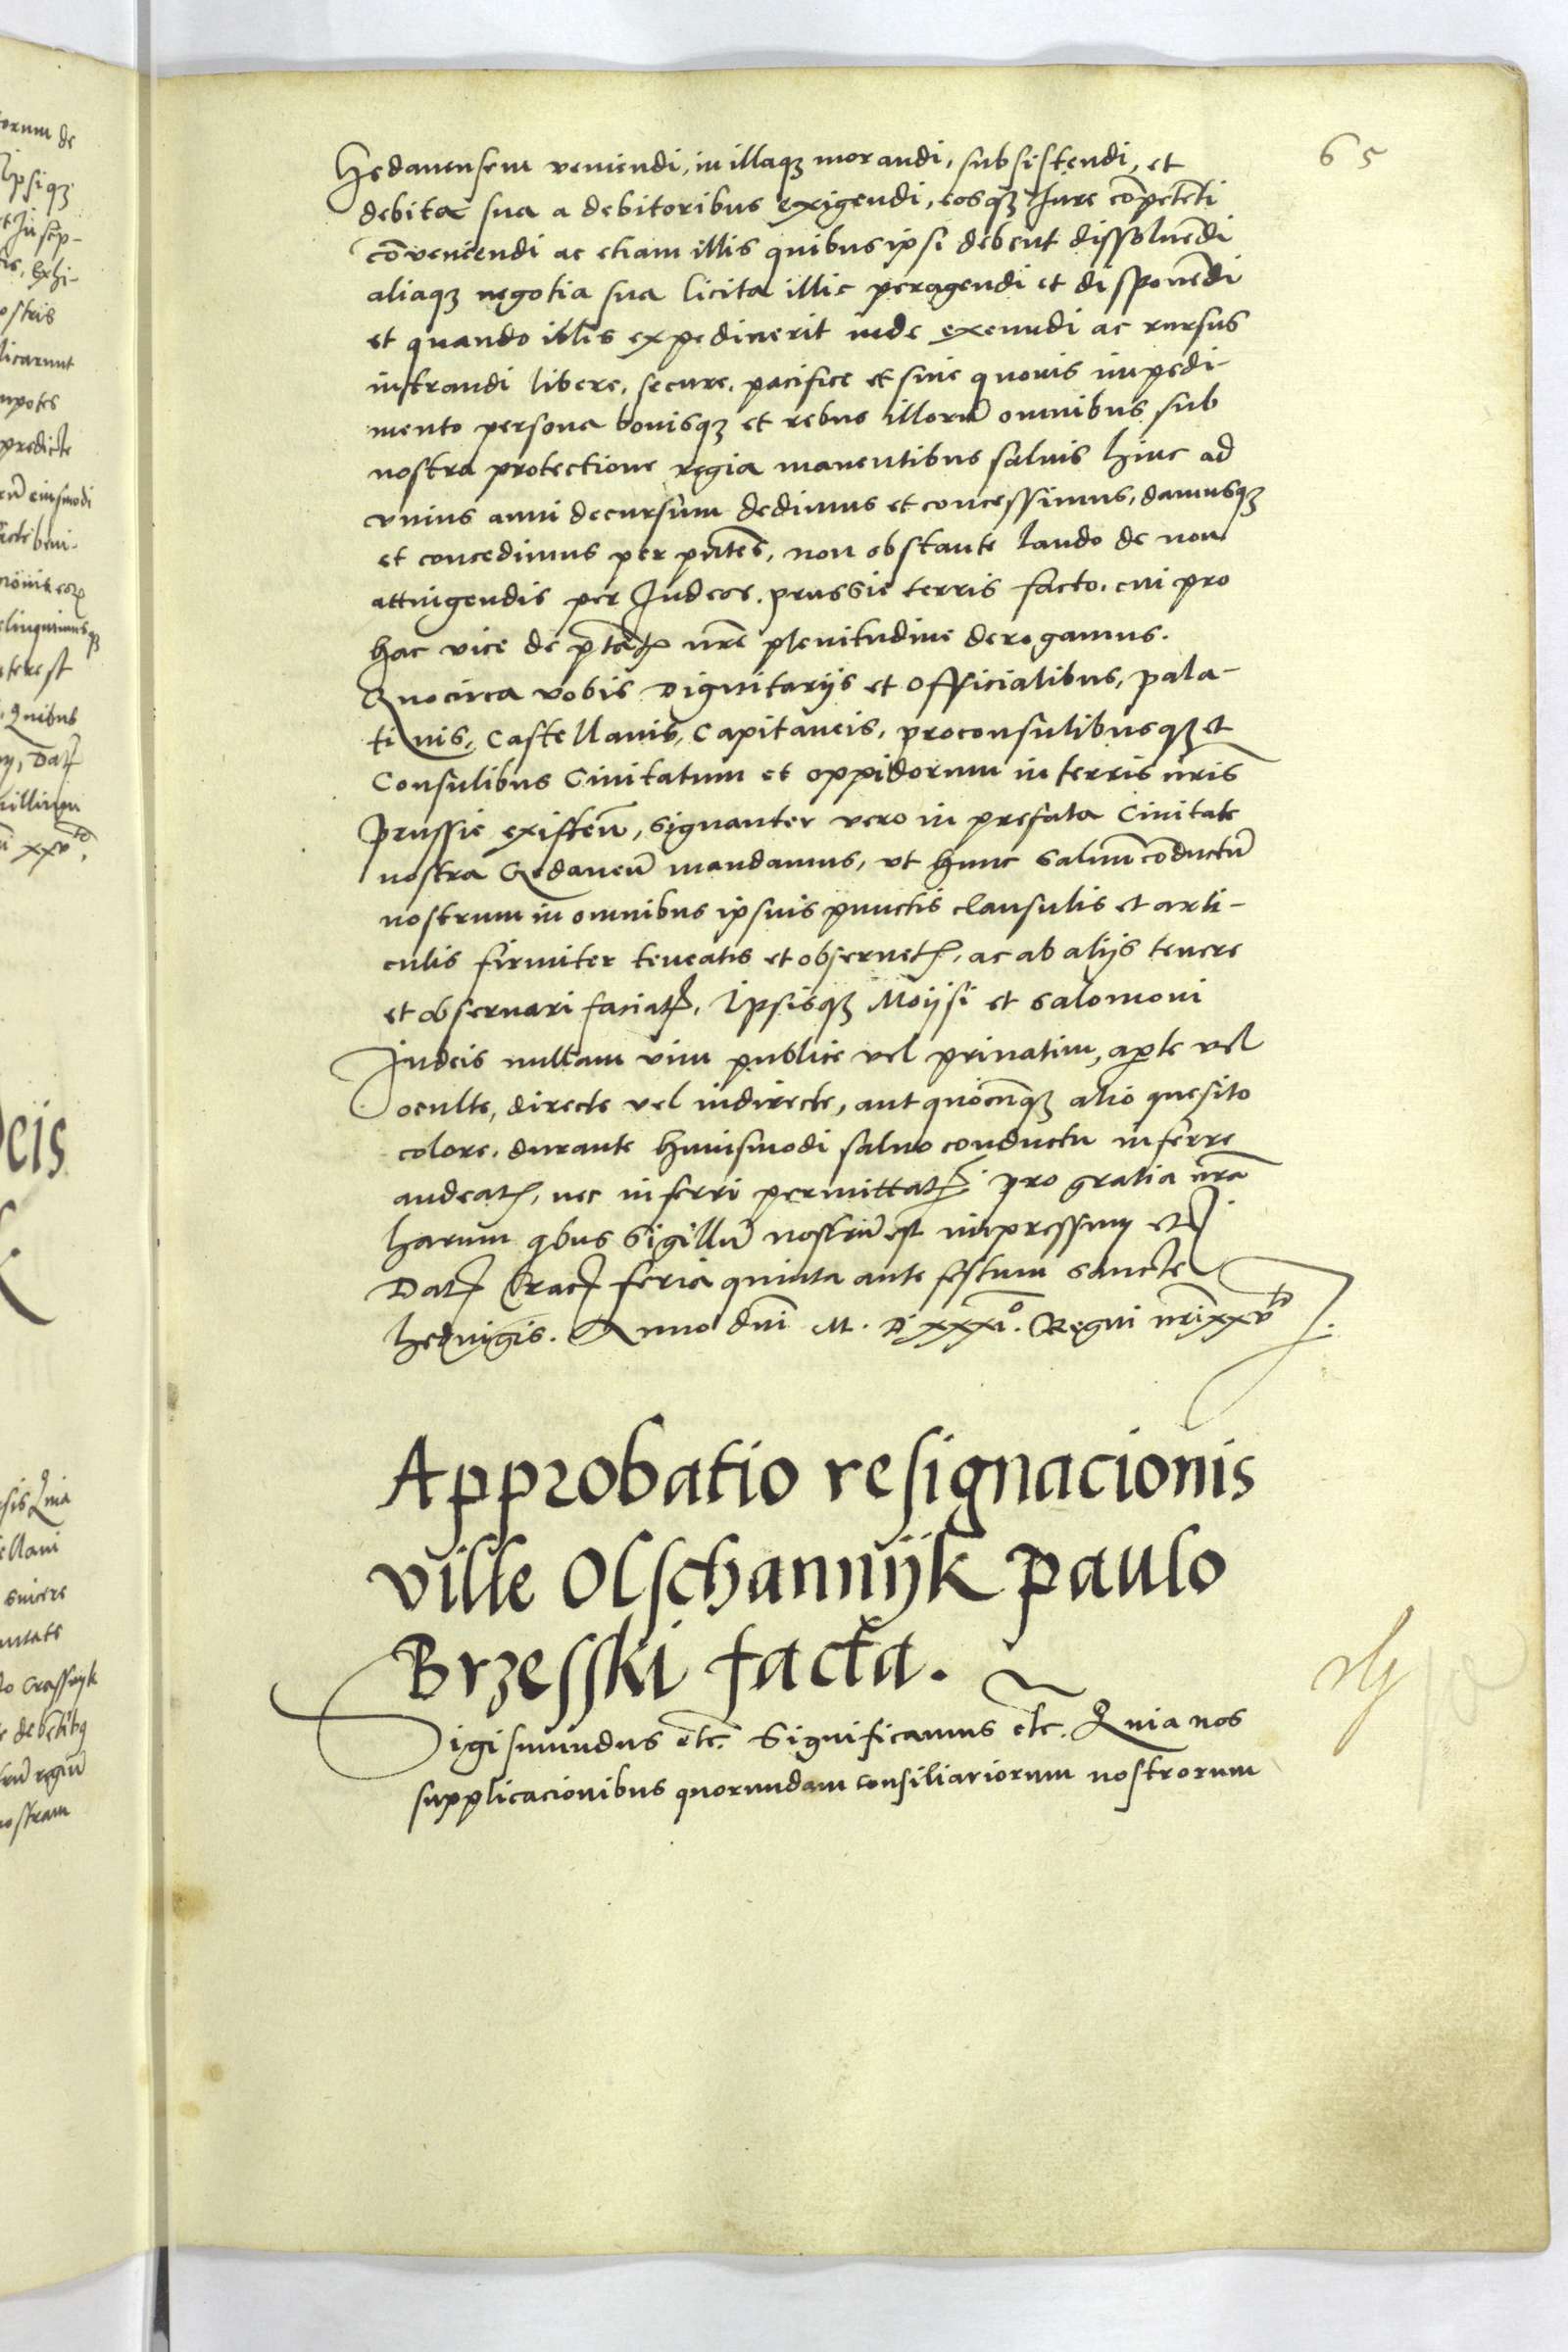 65
Gedanensem veniendi, in illaqꝫ morandi, subsistendi, et
debita sua a debitoribus exigendi, eosqꝫ Jure cōpetēti
cōveniendi ac etiam illis quibus ipsi debent dissoluēdi
aliaqꝫ negotia sua licita illic peragendi et disponēdi
et quando illis expedinerit inde exeundi ac rursus
intrandi libere, secure, pacifice et sine quouis impedi-
mento persona bonisqꝫ et rebus illorū omnibus sub
nostra protectione regia manentibus saluis hinc ad
vnius anni decursum dedimus et concessimus, damusqꝫ
et concedimus per pn̄tes, non obstante laudo de non
attingendis per Judeos prussie terris facto, cui pro
hac vice de ptātꝭ nr̄e plenitudine derogamus.
Quocirca vobis Dignitarijs et Officialibus, pala-
tinis, Castellanis, Capitaneis, proconsulibusqꝫ et
Consulibus Ciuitatum et oppidorum in terris nr̄is
Prussie existeñ, signanter vero in prefata Ciuitate
nostra Gedaneñ mandamus, vt hunc saluū cōductū
nostrum in omnibus ipsius punctis clausulis et arti-
culis firmiter teneatis et obseruetꝭ, ac ab alijs tenere
et obseruari faciatꝭ, Ipsisqꝫ Moijsi et Salomoni
Judeis nullam vim publice vel priuatim, aperte vel
oculte, directe vel indirecte, aut quocūqꝫ alio quesito
colore, durante huiusmodi saluo conductu inferre
audeatꝭ, nec inferri permittatꝭ. pro gratia nr̄a
harum qbus Sigillū nostrū est impressum etꝭ
Datꝭ Cracꝭ feria quinta ante festum Sancte
hedvigis. Anno dn̄i M. D xxxi°. Regni nr̄i xxvto.
Approbatio resignacionis
ville Olschannijk paulo
Brzesski facta.
Sigismundus etc. Significamus etc. Quia nos
supplicacionibus quorundam consiliariorum nostrorum